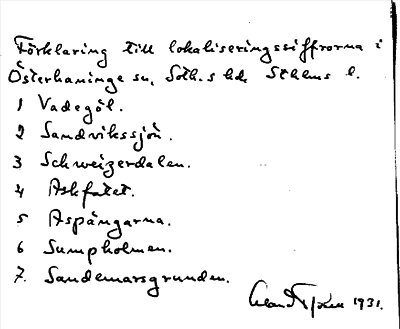 Förklaring till lokaliseringssiffrorna i
Österhaninge sn, Soth.s hd, Sthlms l.
1 Vadegöl.
2 Sandvikssjön.
3 Schweizerdalen.
4 Askfatet.
5 Aspängarna.
6 Sumpholmen.
7. Sandemarsgrunden.
1931.